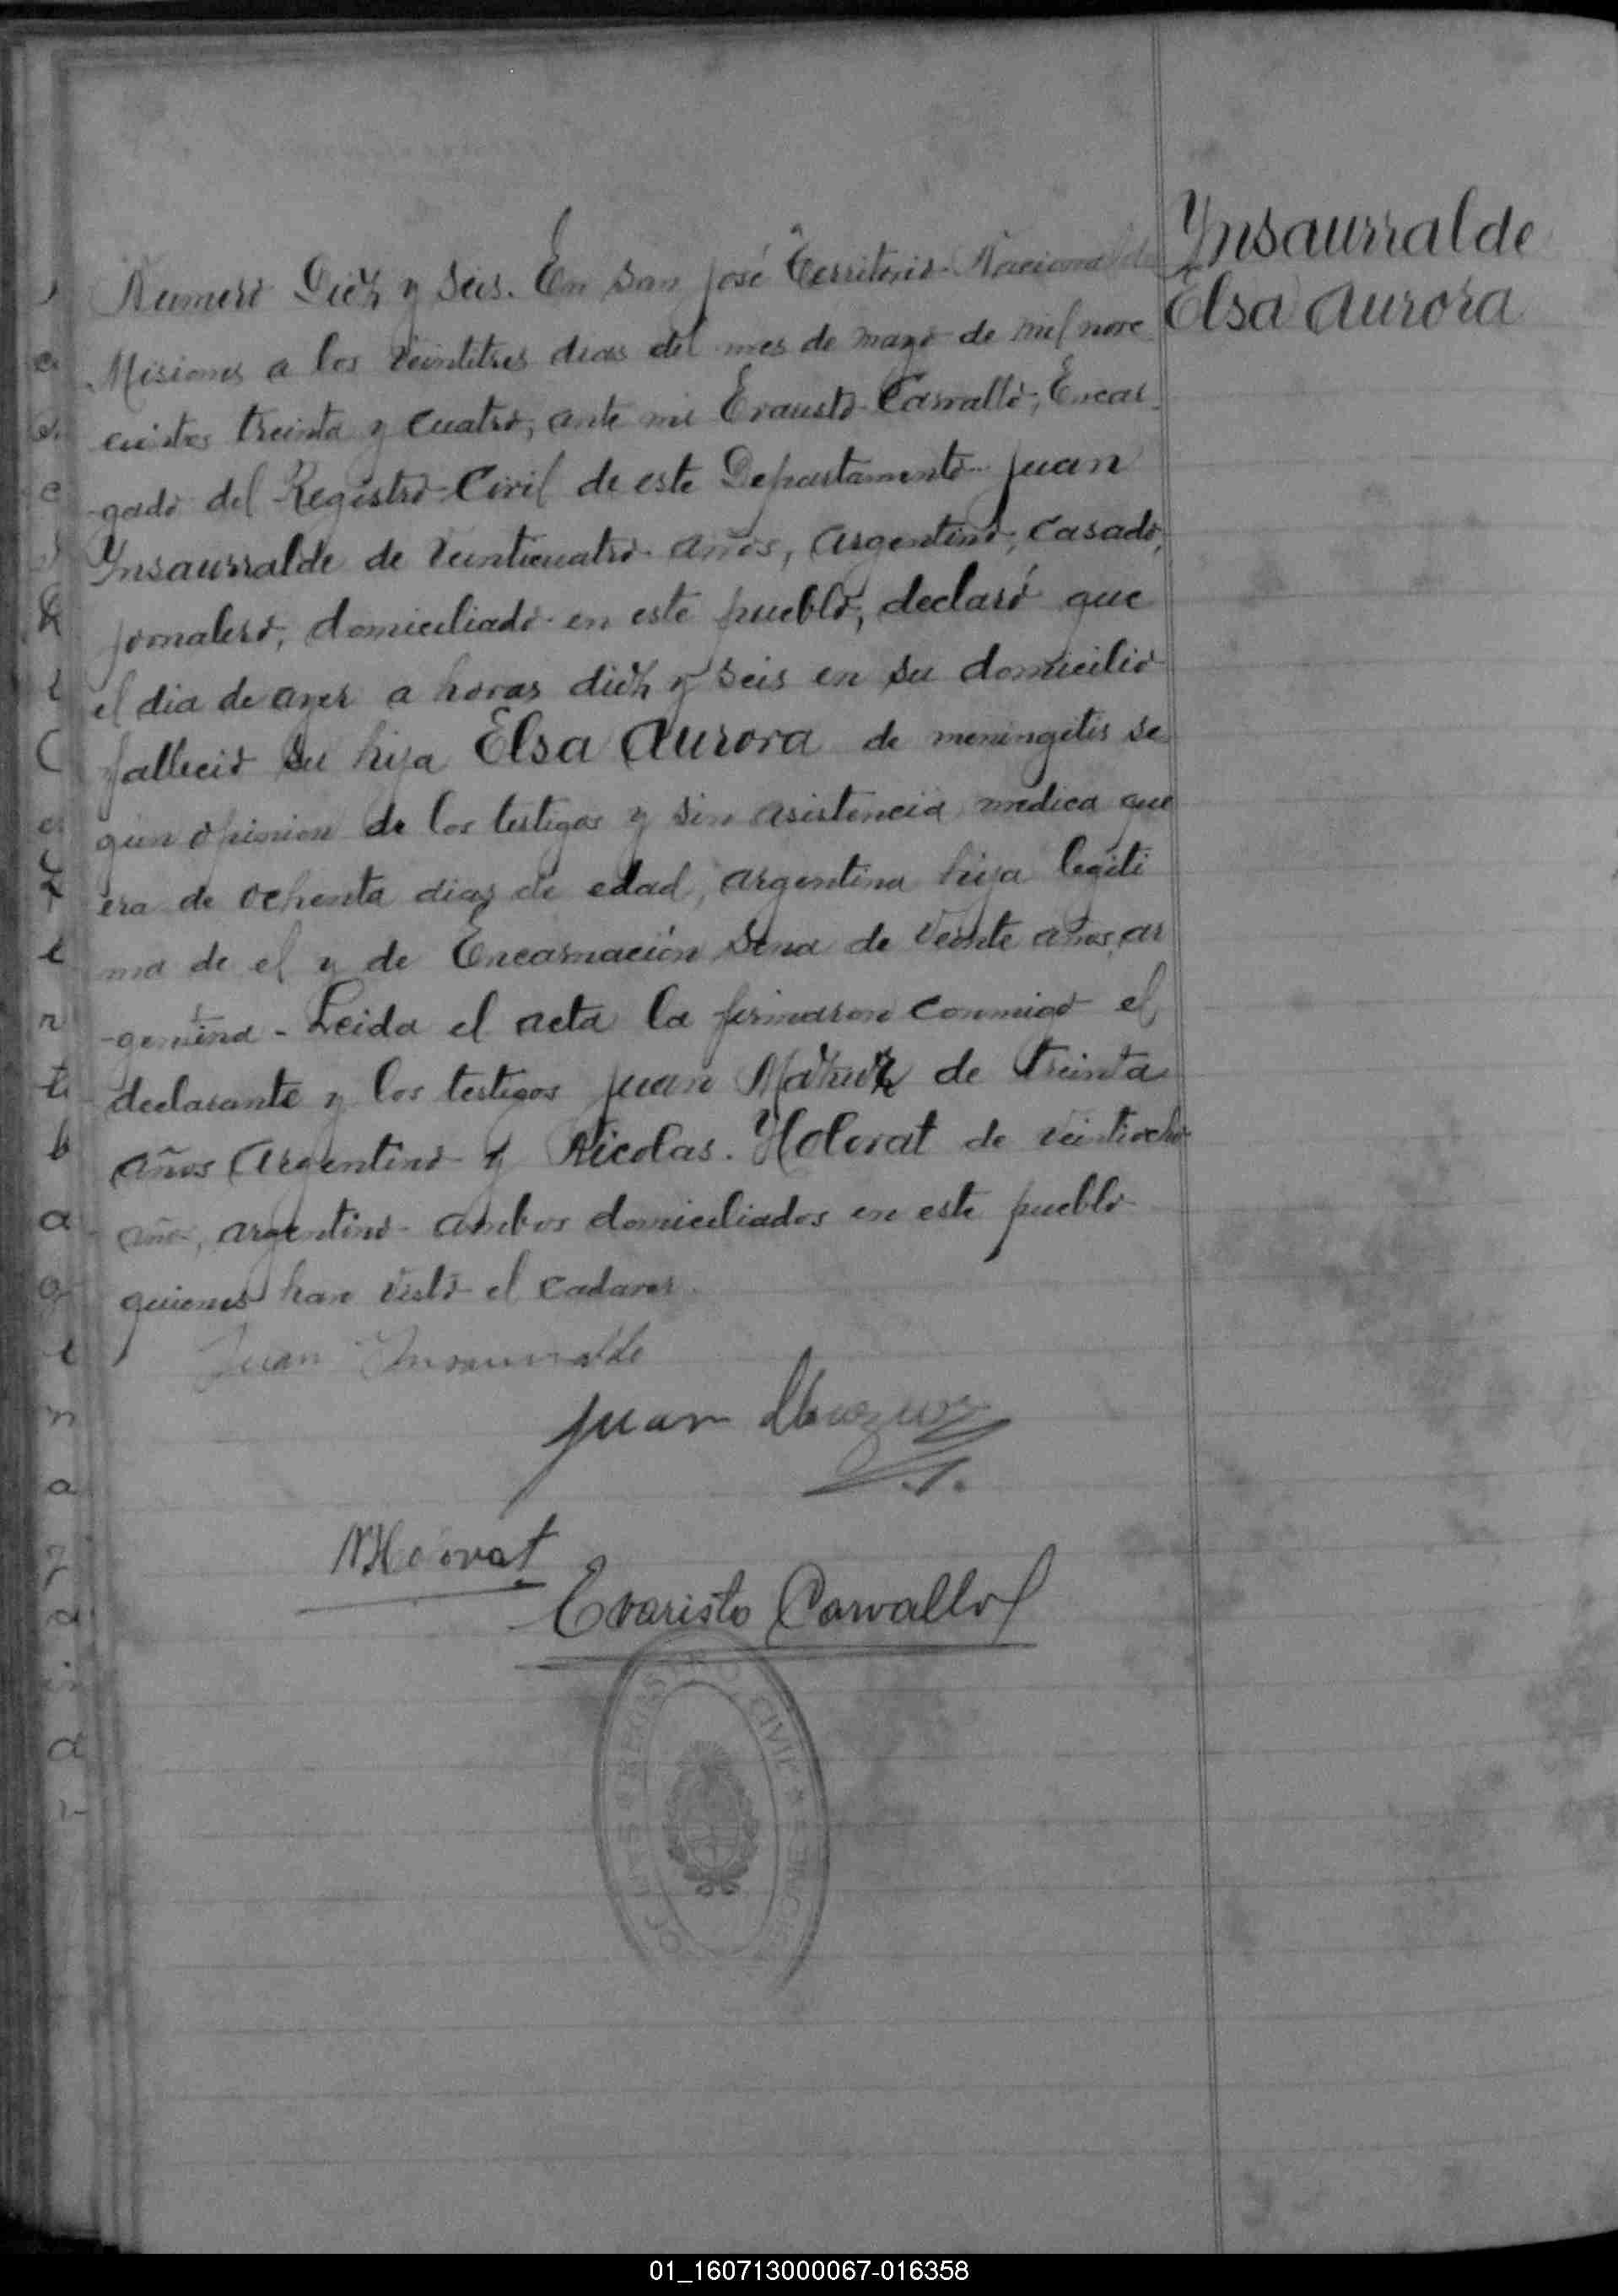 Ynsaurralde
Elsa Aurora
Numero Diez y Seis. En San José Territorio Nacional de
Misiones a los veintitres dias del mes de mayo de mil nove
cientos treinta y cuatro, ante mi Evaristo Carvallo, Encar
gado del Registro Civil de este Departamento Juan
Ynsaurralde de veinticuatro años, argentino, casado,
jornalero, domiciliado en este pueblo, declaró que
el dia de ayer a horas diez y seis en su domicilio
fallecio su hija Elsa Aurora de meningitis se
gun opinion de los testigos y sin asistencia medica que
era de ochenta dias de edad, argentina hija legiti
ma de el y de Encarnación Sena de veinte años, ar
gentina - Leida el acta la firmaron conmigo el
declarante y los testigos Juan de treinta
años argentino y Nicolas. de veintiocho
años, argentino ambos domiciliados en este pueblo
quienes han visto el cadaver.
Juan Insaurralde
Juan
N Horvat
Evaristo Carvallo
REGISTRO CIVIL
SAN JO
01_160713000067-016358